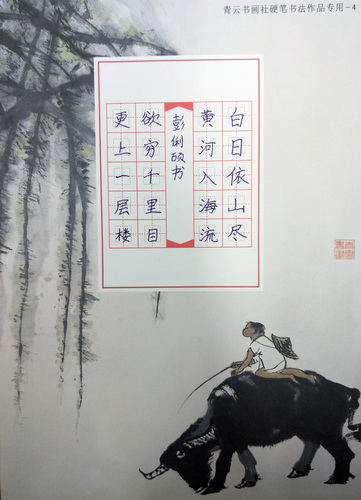 青云书画社硬笔书法作品专用-4
白日依山尽
黄河入海流
彭俐硕书
欲穷千里目
更上一层楼